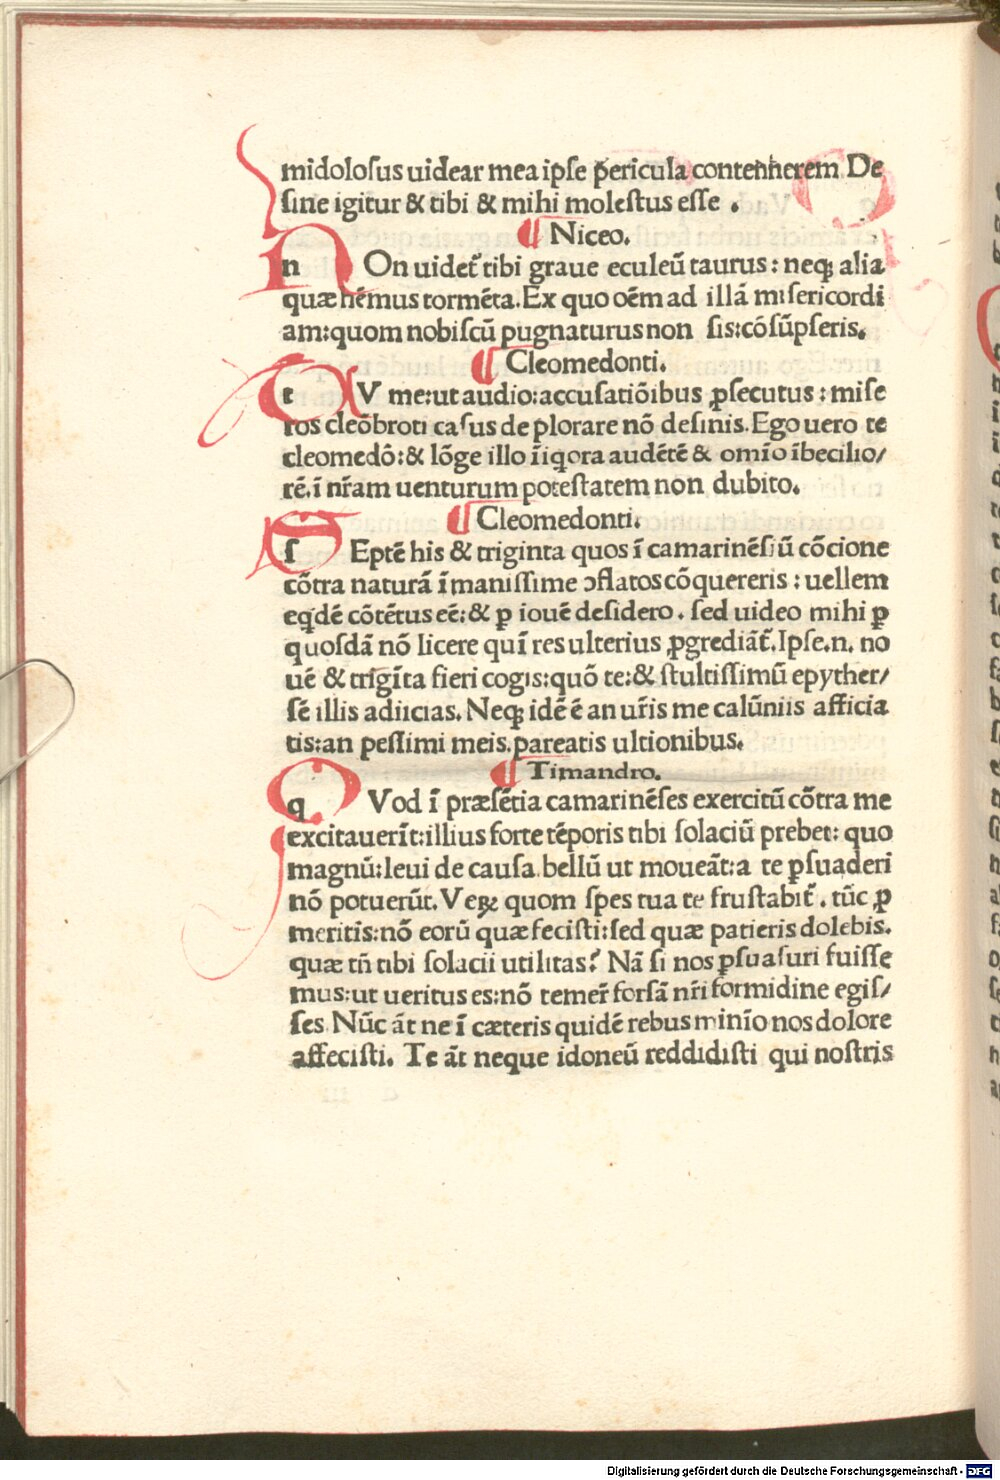 midolosus uidear mea ipse pericula contenherem De
sine igitur & tibi & mihi molestus esse .
¶ Niceo.
n On uidet᷑ tibi graue eculeū taurus : neqꝫ alia
quæ hēmus tormēta. Ex quo oēm ad illā misericordi
am: quom nobiscū pugnaturus non sis: cōsūpseris.
¶ Cleomedonti.
t V me: ut audio: accusatiōibus ꝓsecutus : mise
ros cleōbroti casus de plorare nō desinis. Ego uero te
cleomedō: & lōge illo īiqora audētē & omīo ībecilio/
rē. ī nr̄am uenturum potestatem non dubito.
¶ Cleomedonti.
s Eptē his & triginta quos ī camarinēsiū cōcione
cōtra naturā īmanissime ↄflatos cōquereris : uellem
eqdē cōtētus eē: & ꝑ iouē desidero . sed uideo mihi ꝑ
quosdā nō licere quī res ulterius ꝓgrediāt᷑. Ipse .n. no
uē & trigīta fieri cogis: quō te: & stultissimū epyther/
sē illis adiicias. Neqꝫ idē ē an ur̄is me calūniis afficia
tis: an pessimi meis pareatis ultionibus.
¶ Timandro.
q Vod ī præsētia camarinēses exercitū cōtra me
excitauerīt: illius forte tēporis tibi solaciū prebet: quo
magnū: leui de causa bellū ut moueāt: a te ꝑsuaderi
nō potuerūt. Veꝝ quom spes tua te frustabit᷑ . tūc ꝓ
meritis: nō eorū quæ fecisti: sed quæ patieris dolebis.
quæ tn̄ tibi solacii utilitas? Nā si nos ꝑsuasuri fuisse
mus: ut ueritus es: nō temer̄ forsā nr̄i formidine egis/
ses Nūc āt ne ī cæteris quidē rebus minīo nos dolore
affecisti. Te āt neque idoneū reddidisti qui nostris
Digitalisierung gefördert durch die Deutsche Forschungsgemeinschaft - DFG